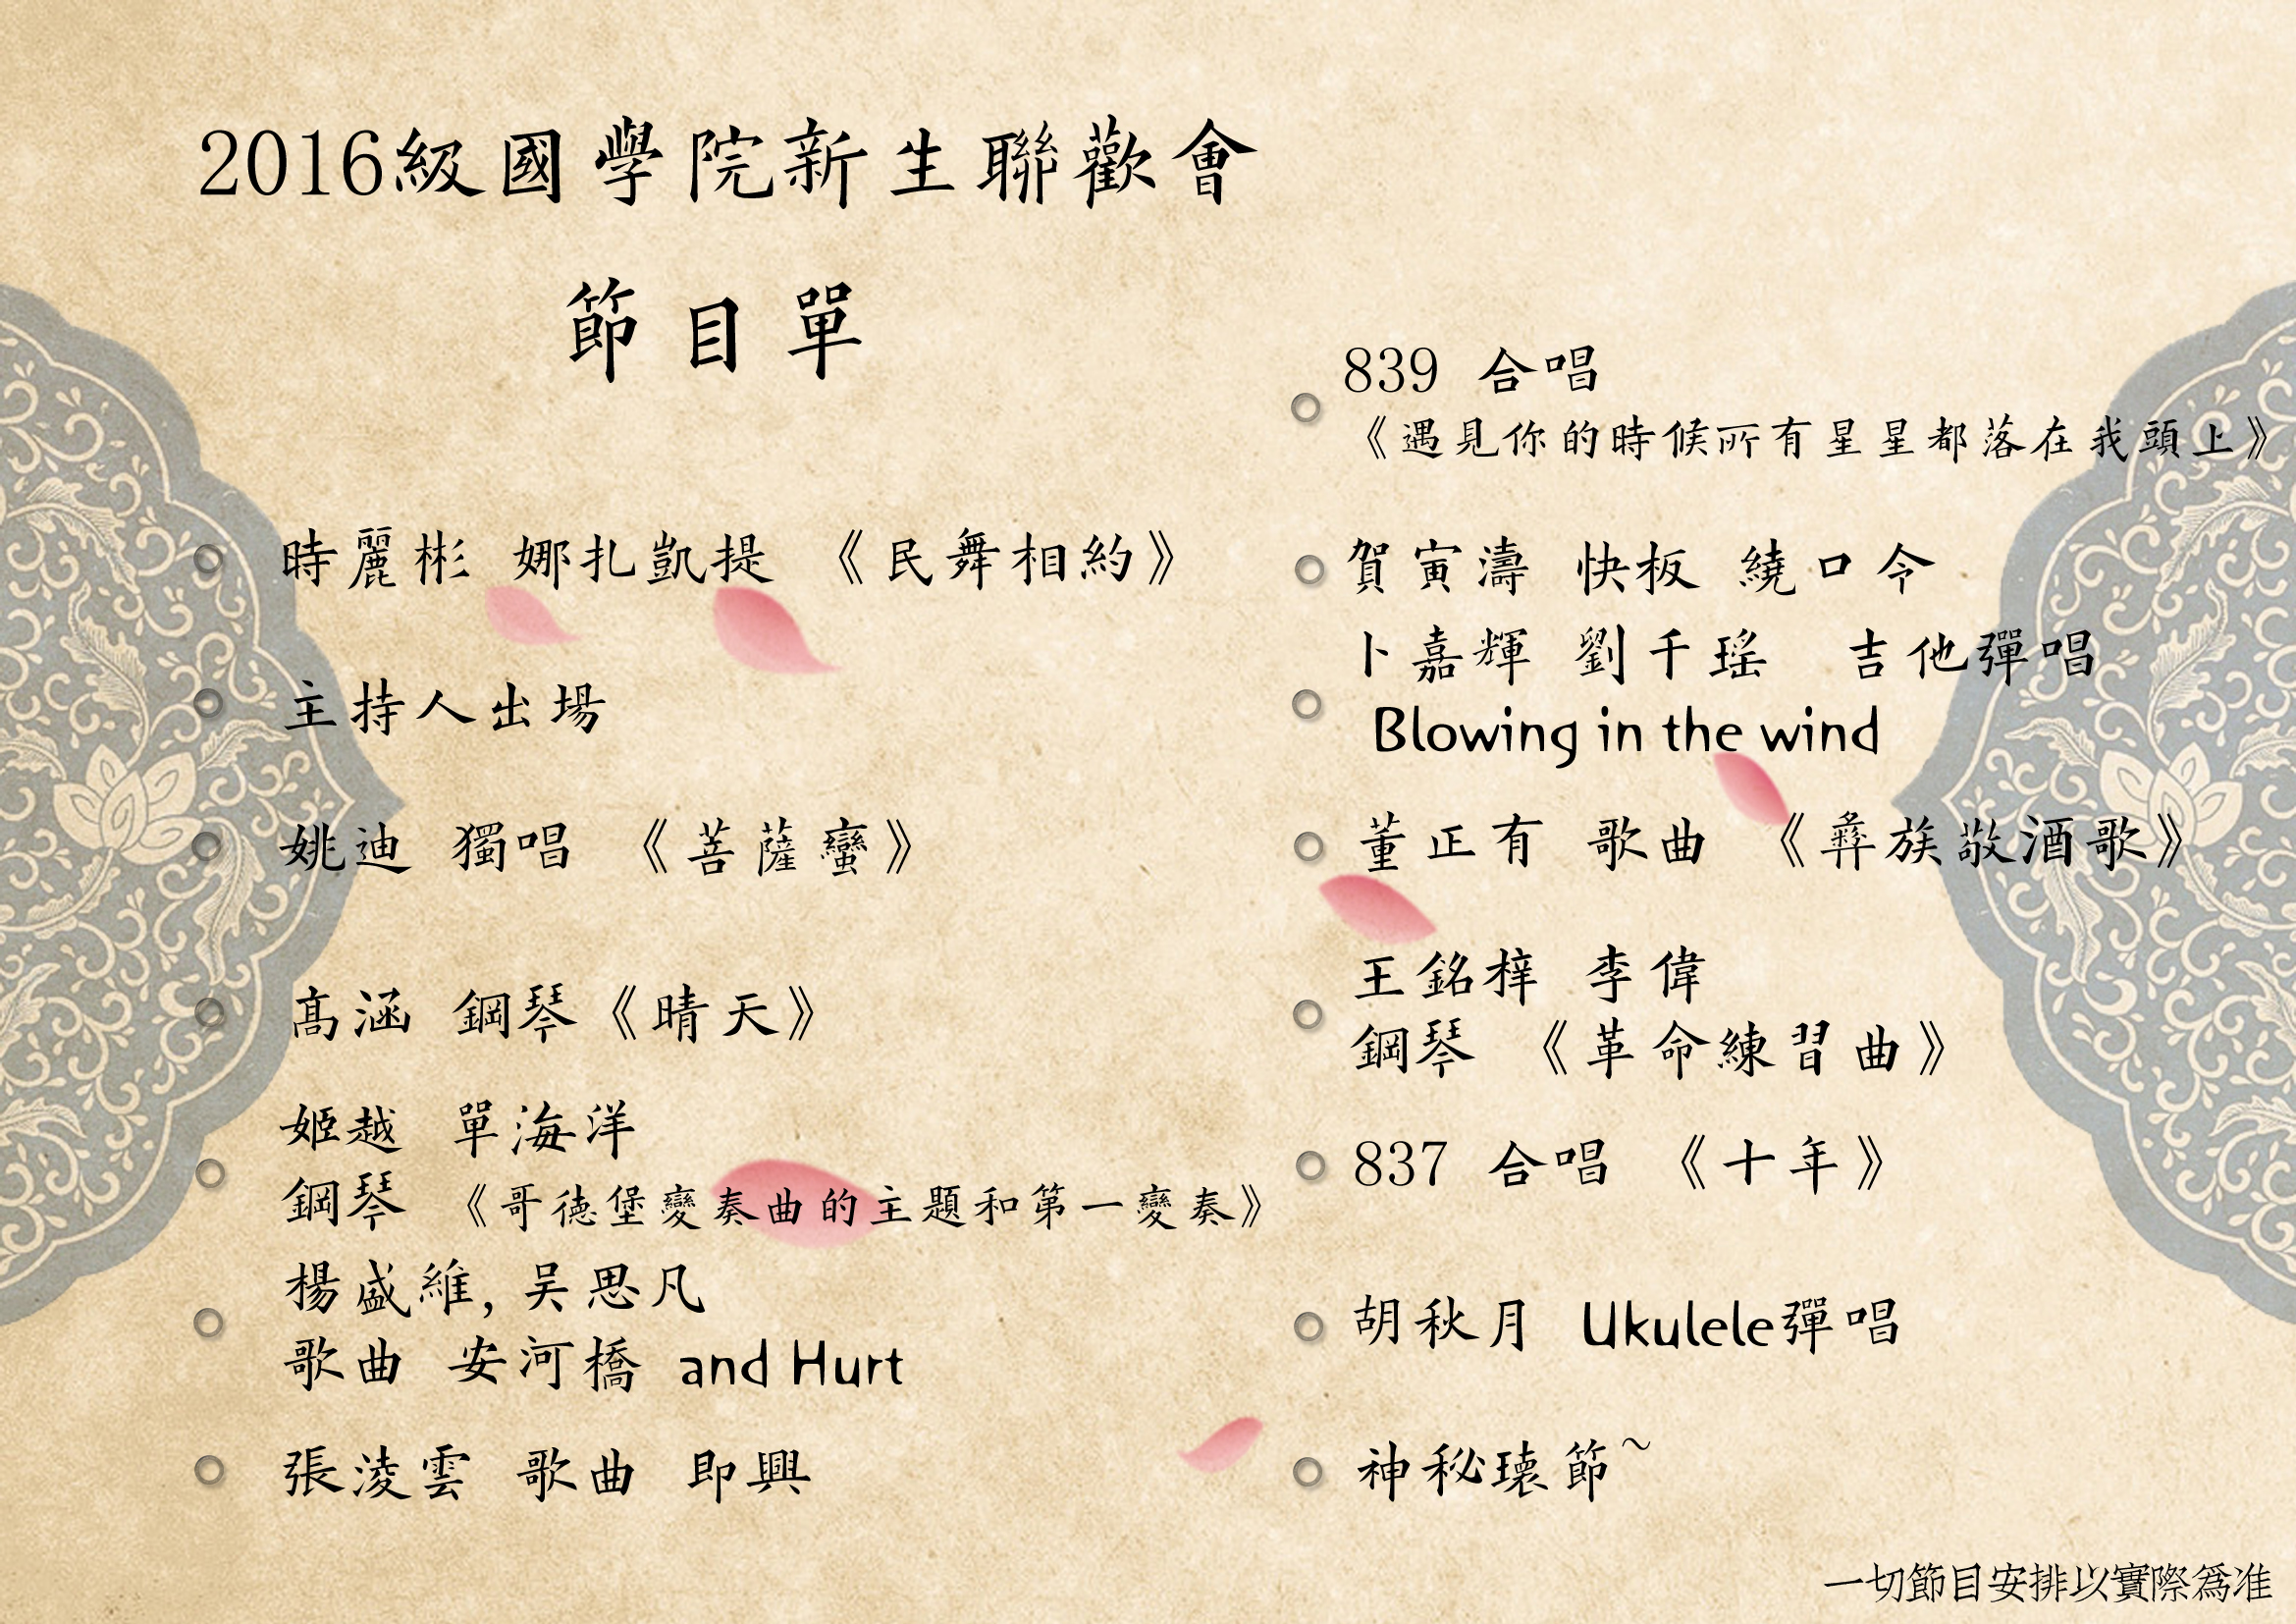 2016級國學院新生聯歡會
節目單
時麗彬 娜扎凱提 《民舞相約》
主持人出場
姚迪 獨唱 《菩薩蠻》
高涵 鋼琴《晴天》
姬越 單海洋
鋼琴 《哥德堡變奏曲的主題和第一變奏》
楊盛維,吴思凡
歌曲 安河橋 and Hurt
張淩雲 歌曲 即興
839 合唱
《遇見你的時候所有星星都落在我頭上》
賀寅濤 快板 繞口令
卜嘉輝 劉千瑤 吉他彈唱
Blowing in the wind
董正有 歌曲 《彝族敬酒歌》
王銘梓 李偉
鋼琴 《革命練習曲》
837 合唱 《十年》
胡秋月 Ukulele彈唱
神秘瓌節~
一切節目安排以實際爲准